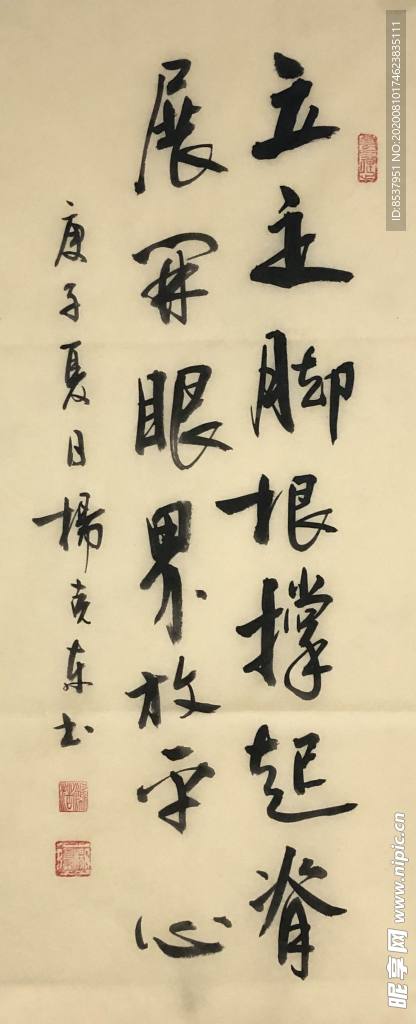 立定脚根撑起脊
展開眼界放平心
庚子夏日楊克東書
ID:8537951 NO:20200810174623835111
昵享网 www.nipic.cn